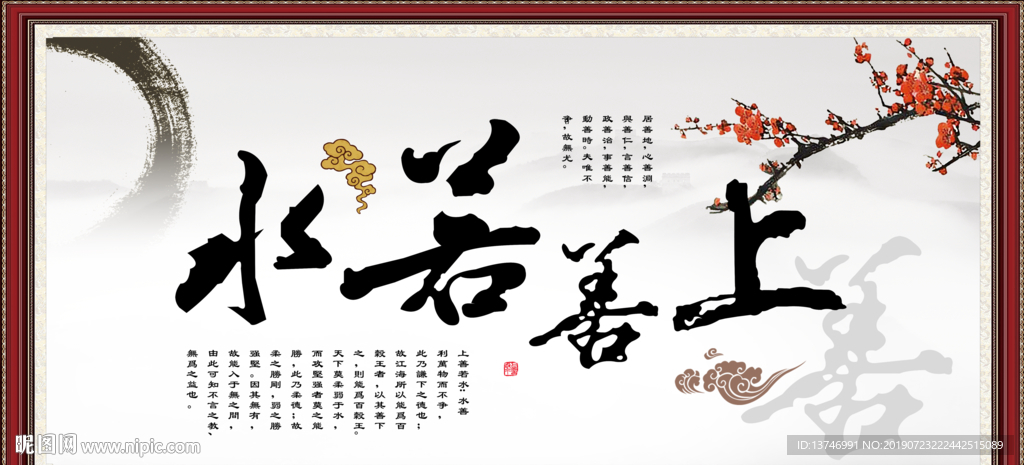 上善若水
居善地,心善淵,
與善仁,言善信,
政善治,事善能,
動善時。夫唯不
爭,故無尤。
上善若水:水善
利萬物而不爭,
此乃謙下之德也;
故江海所以能爲百
穀王者,以其善下
之,則能爲百穀王。
天下莫柔弱于水,
而攻堅强者莫之能
勝,此乃柔德;故
柔之勝剛,弱之勝
强堅。因其無有,
故能入于無之間,
由此可知不言之教、
無爲之益也。
善
昵图网 www.nipic.com
ID:13746991 NO:20190723222442515089